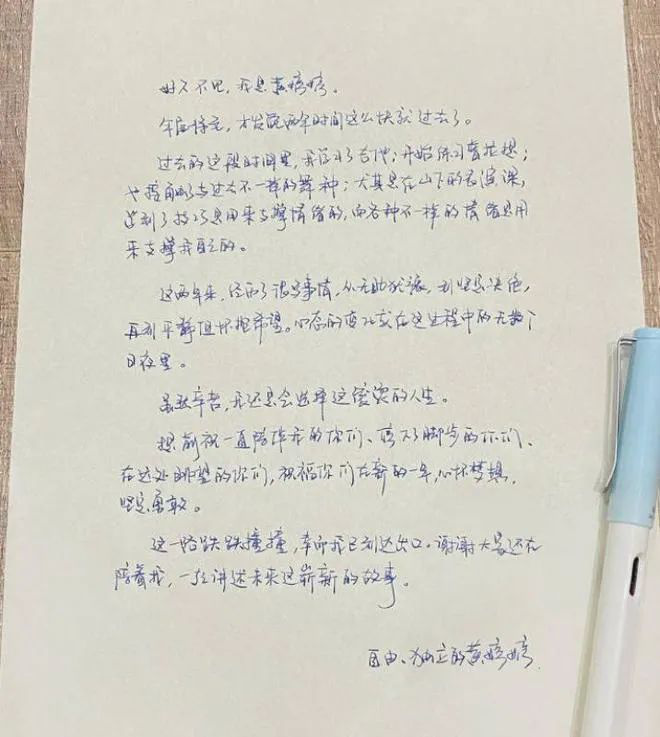 好久不见，我是黄婷婷。
年届将完，才发觉两年时间这么快就过去了。
过去的这段时间里，我学习了吉他；开始练习普拉提；
也接触了与过去不一样的舞种；尤其是在山下的表演课，
学到了技巧是用来支撑情绪的，而各种不一样的情绪是用
来支撑我自己的。
这两年来，经历了很多事情，从无助犹豫，到坚忍决绝，
再到平静但怀抱希望。心态的变化或在这过程中的无数个
日夜里。
虽然辛苦，我还是会选择这个真实的人生。
想祈祝一直陪伴我的你们、停下了脚步的你们、
在远处眺望的你们，祝福你们在新的一年，心怀梦想，
坚定勇敢。
这一路跌跌撞撞，幸而我已到达出口。谢谢大家还在
陪着我，一起讲述未来这崭新的故事。
自由、独立的黄婷婷